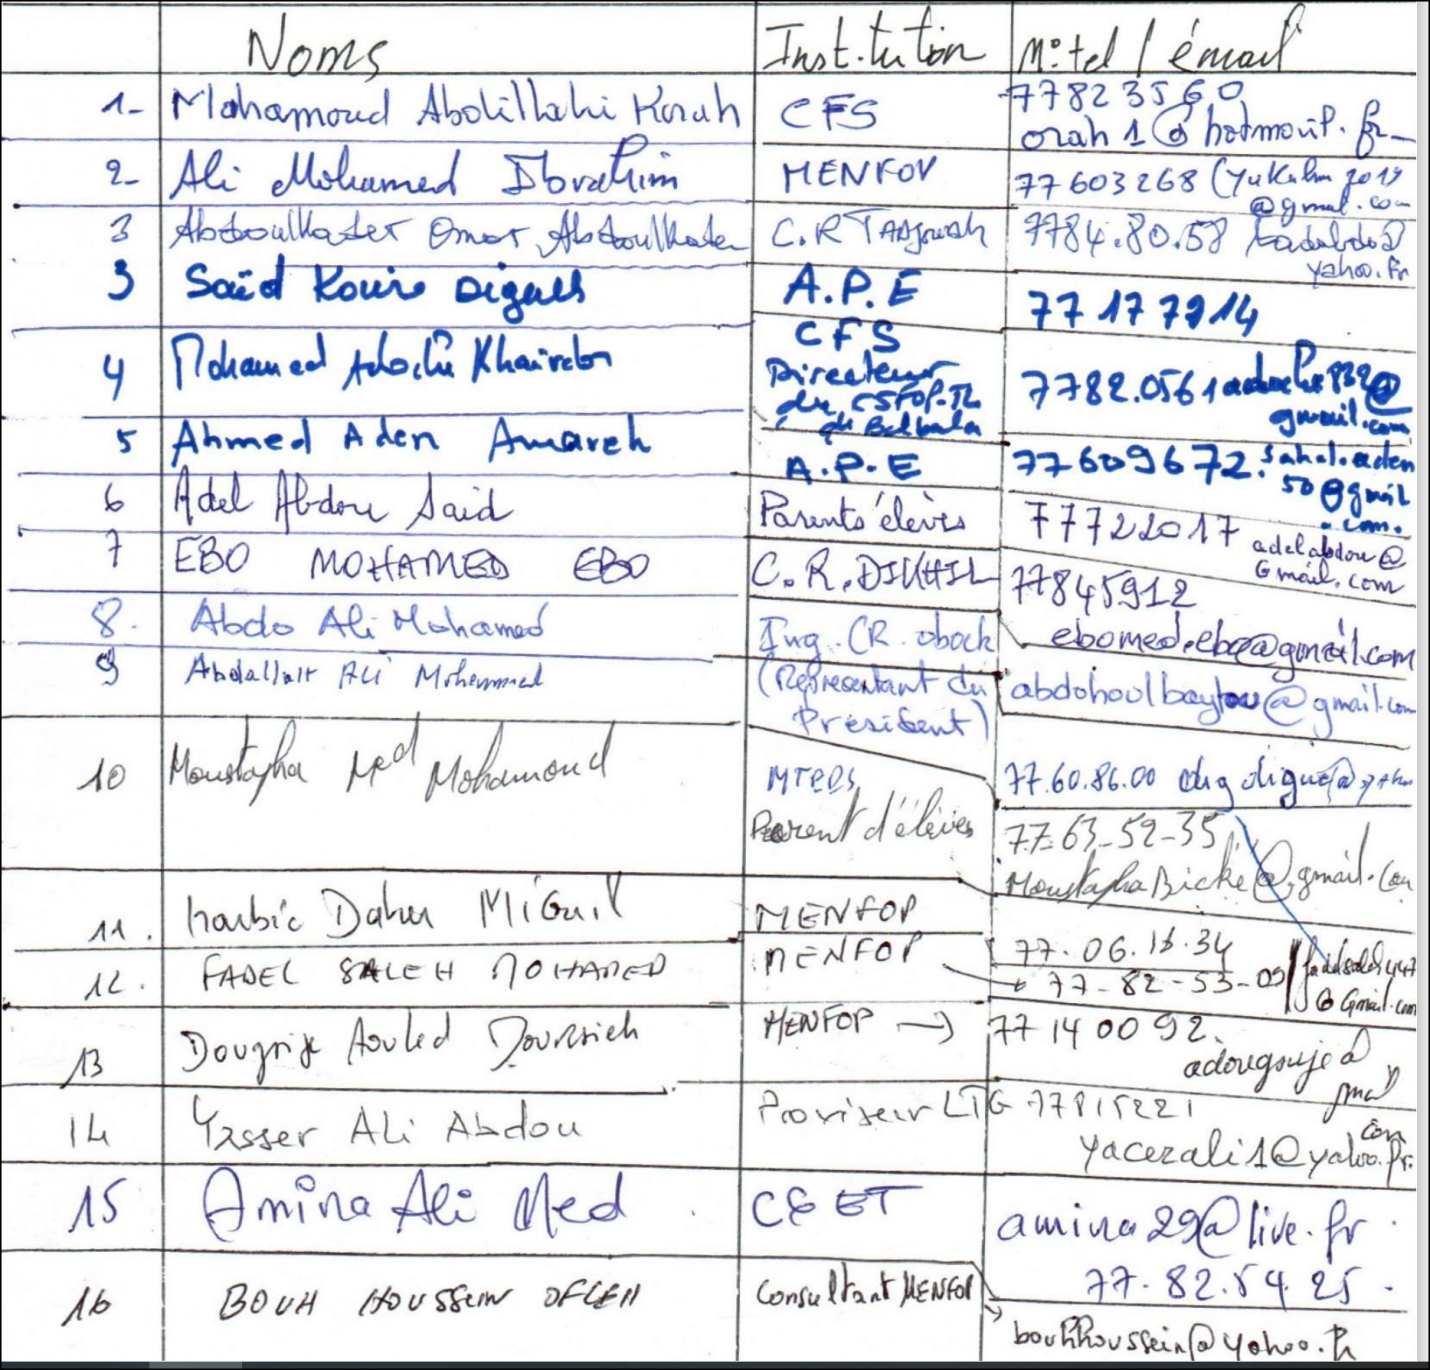 Noms Institution N° tel / émail
1- Mohamoud Abdillahi Korah CFS 77823560
orah1@hotmail.fr
2- Ali Mohamed Ibrahim MENFOP 77603268 (yukulm2019
@gmail.com
3 Abdoulkader Omar Abdoulkader C.R Tadjourah 7784.80.58
yahoo.fr
3 Said Kouire Digaleh A.P.E 77177914
4 Mohamed Adochi Khaireh CFS
Directeur
du CSFOP-
de Balbala
7782.0561
gmail.com
5 Ahmed Aden Amareh A.P.E 77609672. sahal.aden
50@gmail
.com.
6 Adel Abdou Said Parents élèves 77722017 adelabdou@
Gmail.com
7 EBO MOHAMED EBO C.R.DIKHIL 77845912
ebomed.ebo@gmail.com
8. Abdo Ali Mohamed Ing. CR. obock
(Représentant du
Président)
abdohoulbaytou@gmail.com
9 Abdallah Ali Mohammed
MTRDS 77.60.86.00
10 Moustapha Med Mohamoud Parent d'élèves 77-63-52-35
MoustaphaBické@gmail.com
11. Daher MENFOP 77.06.18.34
12. FADEL SALEH MOHAMED MENFOP 77-82-53-09 fadelsaleh447
@Gmail.com
13 Aouled MENFOP 77140092.
adougouje@
gmail
com
14 Yasser Ali Abdou Proviseur LTG 77815221
yacerali1@yahoo.fr.
15 Amina Ali Med amina29@live.fr
77.82.54.25.
16 BOUH HOUSSEIN OFLEH Consultant MENFOP
bouhhoussein@yahoo.fr